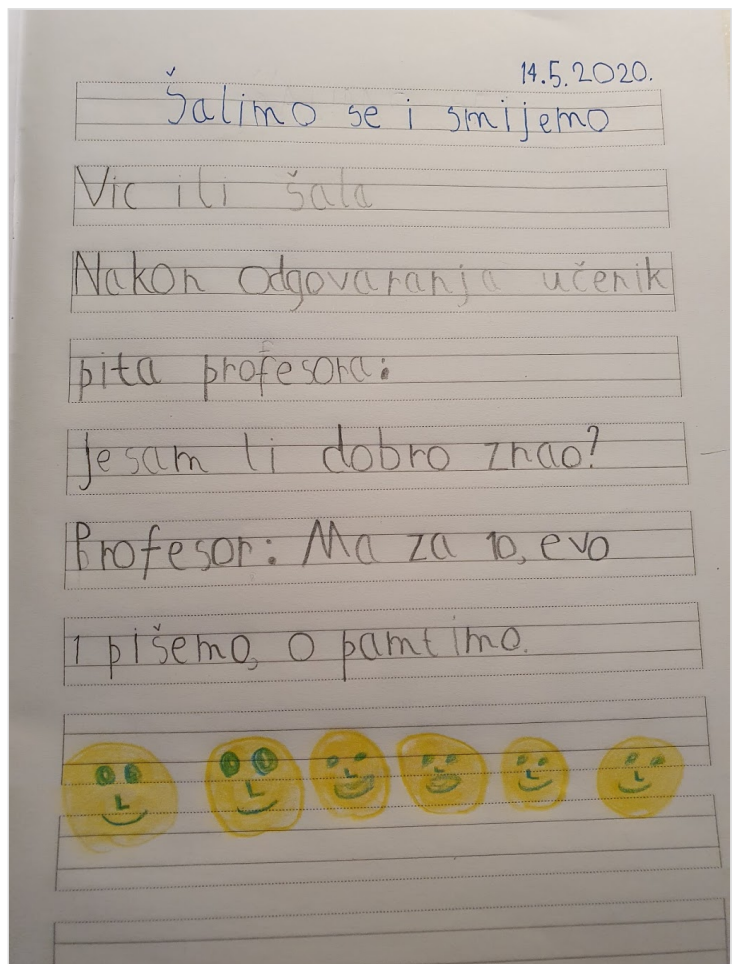 14.5.2020.
Šalimo se i smijemo
Vic ili šala
Nakon odgovaranja učenik
pita profesora:
Jesam li dobro znao?
Profesor: Ma za 10, evo
1 pišemo, 0 pamtimo.